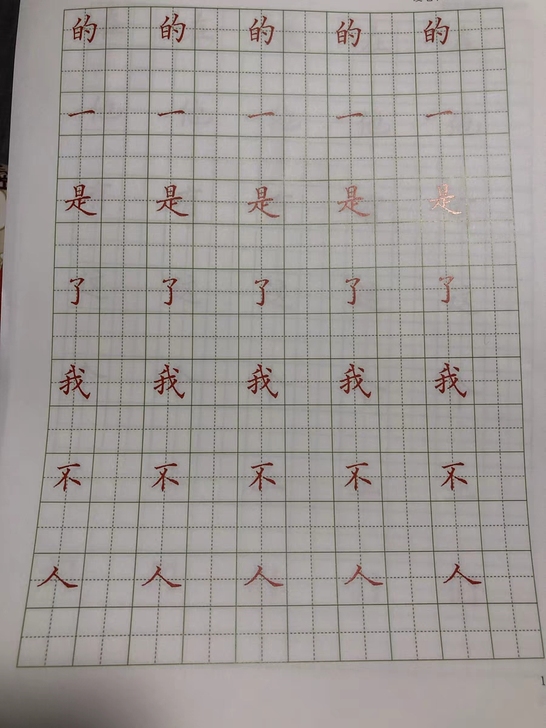 的 的 的 的 的
一 一 一 一 一
是 是 是 是 是
了 了 了 了 了
我 我 我 我 我
不 不 不 不 不
人 人 人 人 人